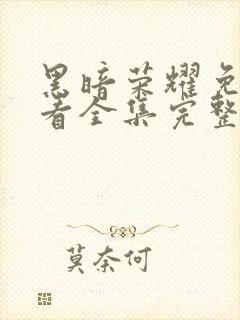 黑暗荣耀免
看全集完整
莫奈何